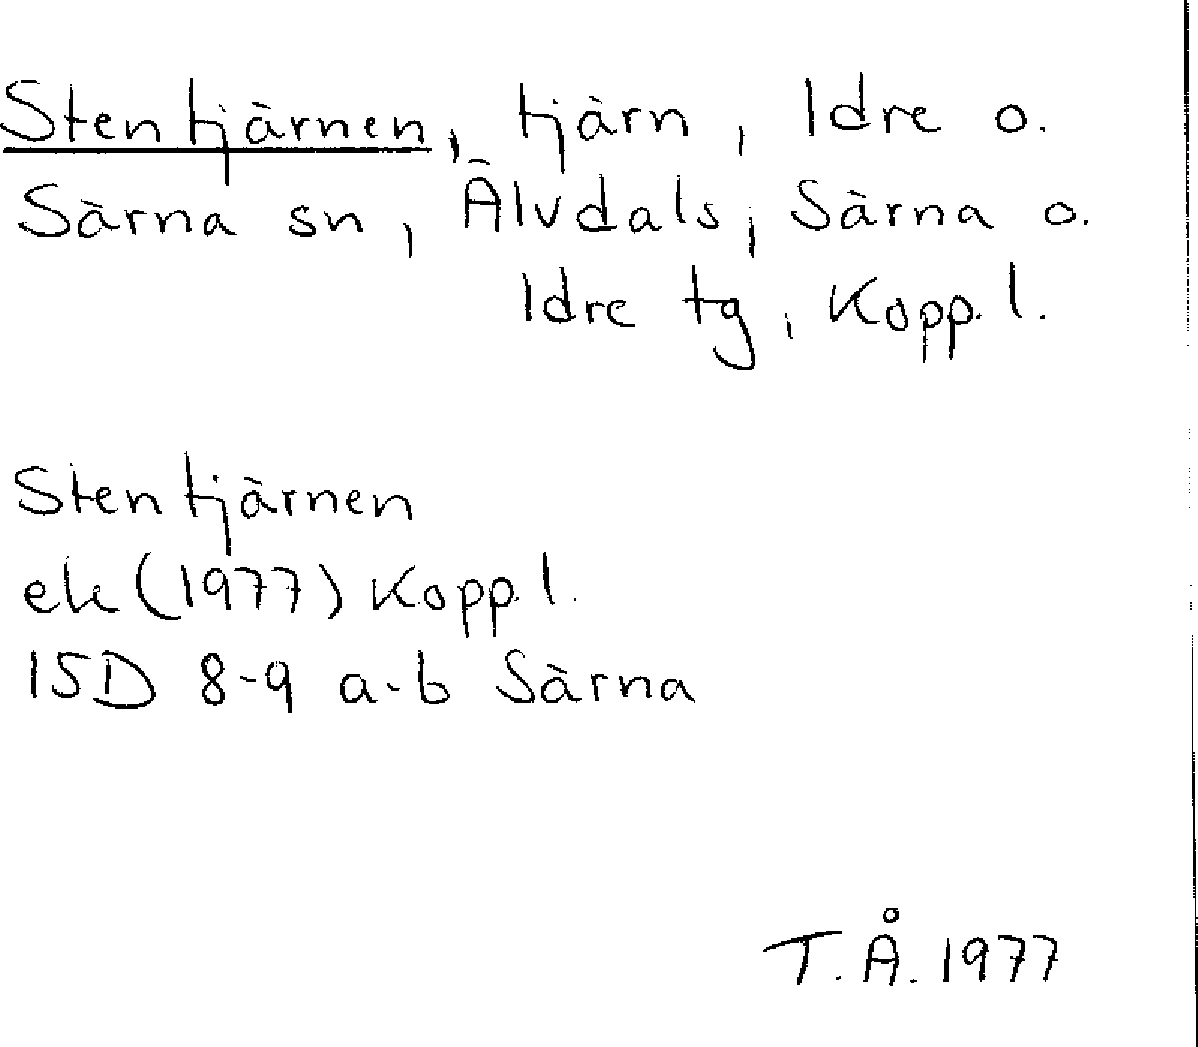 Stentjärnen, tjärn, Idre o.
Särna sn, Älvdals, Särna o.
Idre tg, Kopp. l.
Stentjärnen
ek (1977) Kopp l.
15D 8-9 a-b Särna
T. Å. 1977